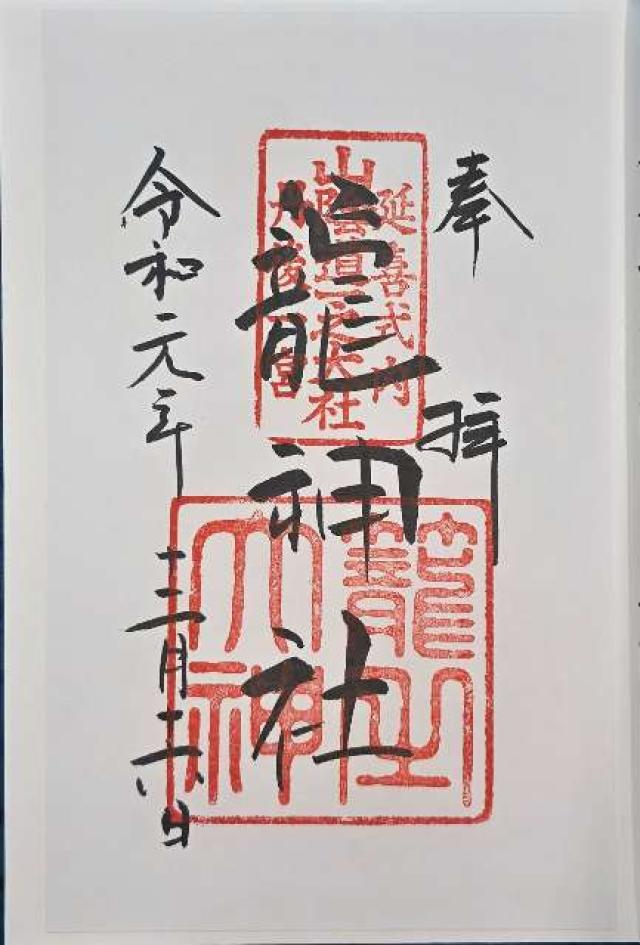 奉拝
延喜式内
山陰道一之大社
丹後一宮
籠神社
籠之大神
令和元年十二月二六日